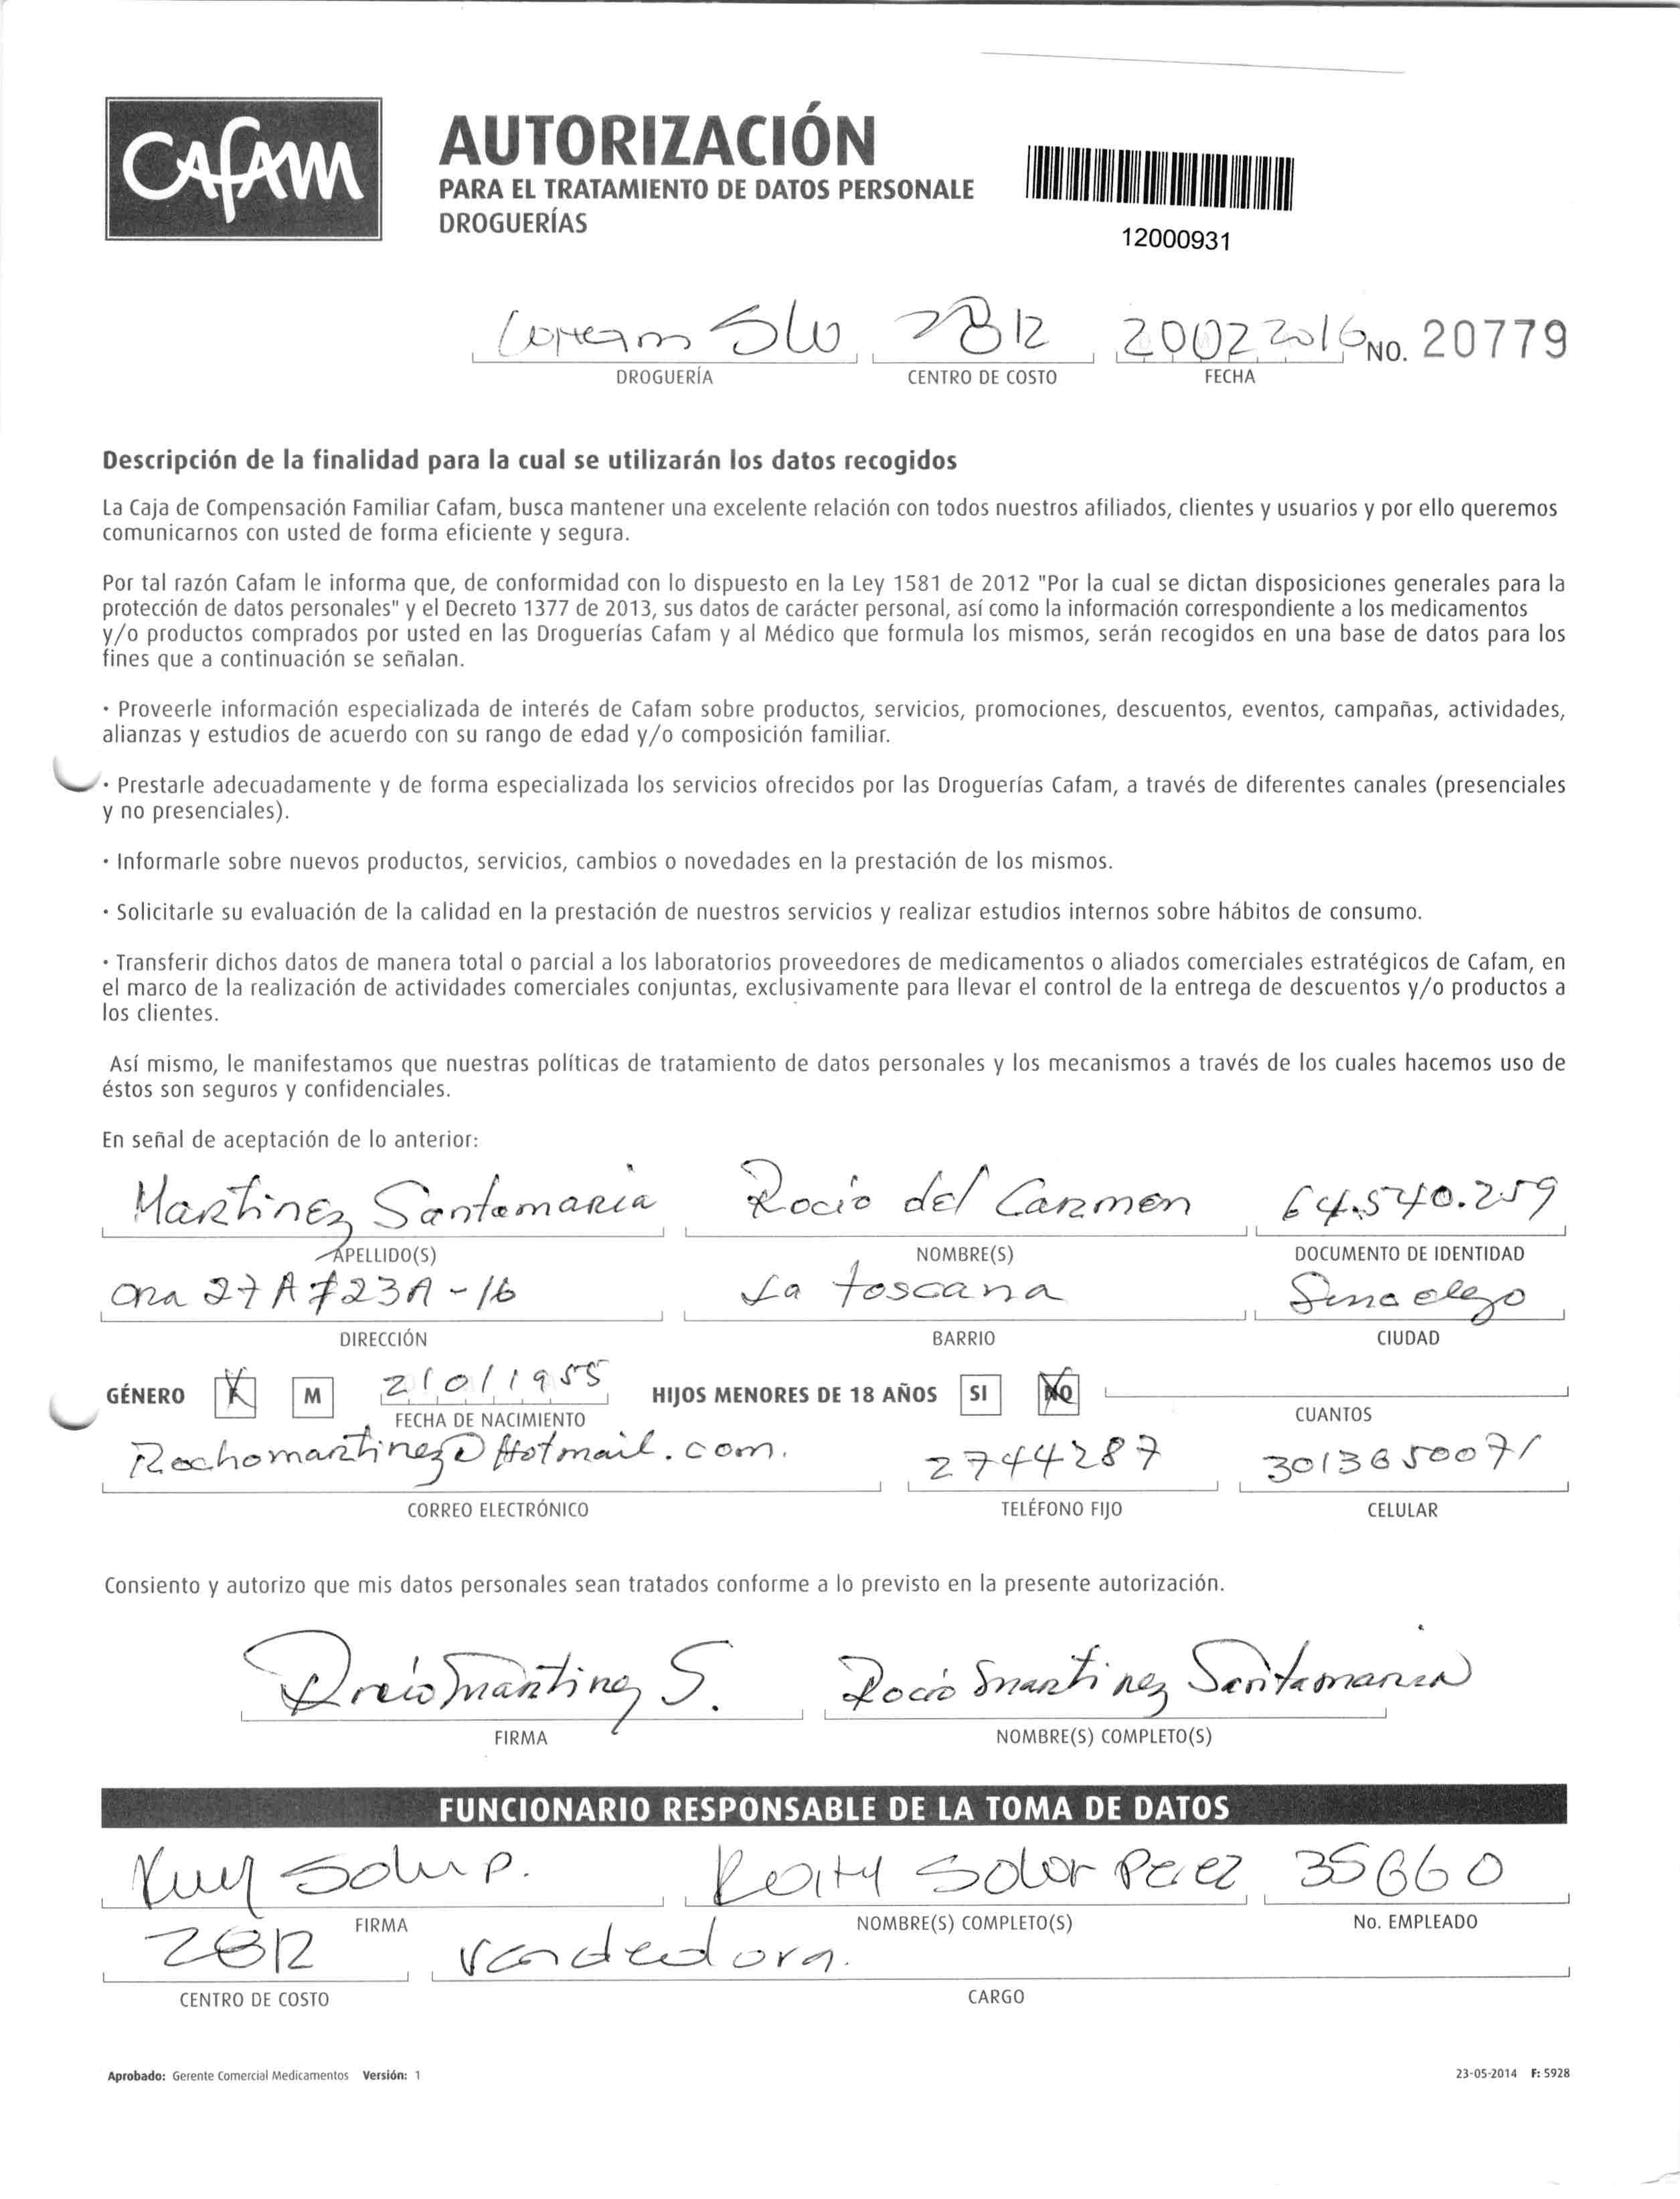 CAFAM
AUTORIZACIÓN
PARA EL TRATAMIENTO DE DATOS PERSONALE
DROGUERÍAS
12000931
2812 20022016 No. 20779
DROGUERÍA CENTRO DE COSTO FECHA
Descripción de la finalidad para la cual se utilizarán los datos recogidos
La Caja de Compensación Familiar Cafam, busca mantener una excelente relación con todos nuestros afiliados, clientes y usuarios y por ello queremos
comunicarnos con usted de forma eficiente y segura.
Por tal razón Cafam le informa que, de conformidad con lo dispuesto en la Ley 1581 de 2012 "Por la cual se dictan disposiciones generales para la
protección de datos personales" y el Decreto 1377 de 2013, sus datos de carácter personal, así como la información correspondiente a los medicamentos
y/o productos comprados por usted en las Droguerías Cafam y al Médico que formula los mismos, serán recogidos en una base de datos para los
fines que a continuación se señalan.
· Proveerle información especializada de interés de Cafam sobre productos, servicios, promociones, descuentos, eventos, campañas, actividades,
alianzas y estudios de acuerdo con su rango de edad y/o composición familiar.
· Prestarle adecuadamente y de forma especializada los servicios ofrecidos por las Droguerías Cafam, a través de diferentes canales (presenciales
y no presenciales).
· Informarle sobre nuevos productos, servicios, cambios o novedades en la prestación de los mismos.
· Solicitarle su evaluación de la calidad en la prestación de nuestros servicios y realizar estudios internos sobre hábitos de consumo.
· Transferir dichos datos de manera total o parcial a los laboratorios proveedores de medicamentos o aliados comerciales estratégicos de Cafam, en
el marco de la realización de actividades comerciales conjuntas, exclusivamente para llevar el control de la entrega de descuentos y/o productos a
los clientes.
Así mismo, le manifestamos que nuestras políticas de tratamiento de datos personales y los mecanismos a través de los cuales hacemos uso de
éstos son seguros y confidenciales.
En señal de aceptación de lo anterior:
Martinez Santamaria Rocio del Carmen 64.540.259
APELLIDO(S) NOMBRE(S) DOCUMENTO DE IDENTIDAD
Cra 27A #23A-16 La toscana Sincelejo
DIRECCIÓN BARRIO CIUDAD
GÉNERO X M 21011955 HIJOS MENORES DE 18 AÑOS SI NO
FECHA DE NACIMIENTO CUANTOS
Rochomartinez@Hotmail.com. 2744287 3013650071
CORREO ELECTRÓNICO TELÉFONO FIJO CELULAR
Consiento y autorizo que mis datos personales sean tratados conforme a lo previsto en la presente autorización.
Rocio Martinez S. Rocio Martinez Santamaria
FIRMA NOMBRE(S) COMPLETO(S)
FUNCIONARIO RESPONSABLE DE LA TOMA DE DATOS
Solar Perez 35660
FIRMA NOMBRE(S) COMPLETO(S) No. EMPLEADO
2812 Vendedora.
CENTRO DE COSTO CARGO
Aprobado: Gerente Comercial Medicamentos Versión: 1 23-05-2014 F: 5928